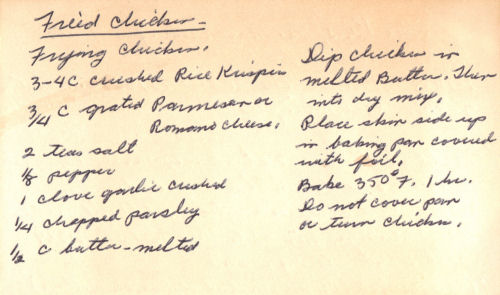 Fried Chicken
Frying Chicken.
3-4 C crushed Rice Krispies
3/4 C grated Parmesan or
Romano Cheese.
2 teas salt
1/8 pepper
1 clove garlic crushed
1/4 chopped parsley
1/2 c butter - melted
Dip chicken in
melted Butter. Then
into dry mix.
Place skin side up
in baking pan covered
with foil.
Bake 350° F. 1 hr.
Do not cover pan
or turn chicken.